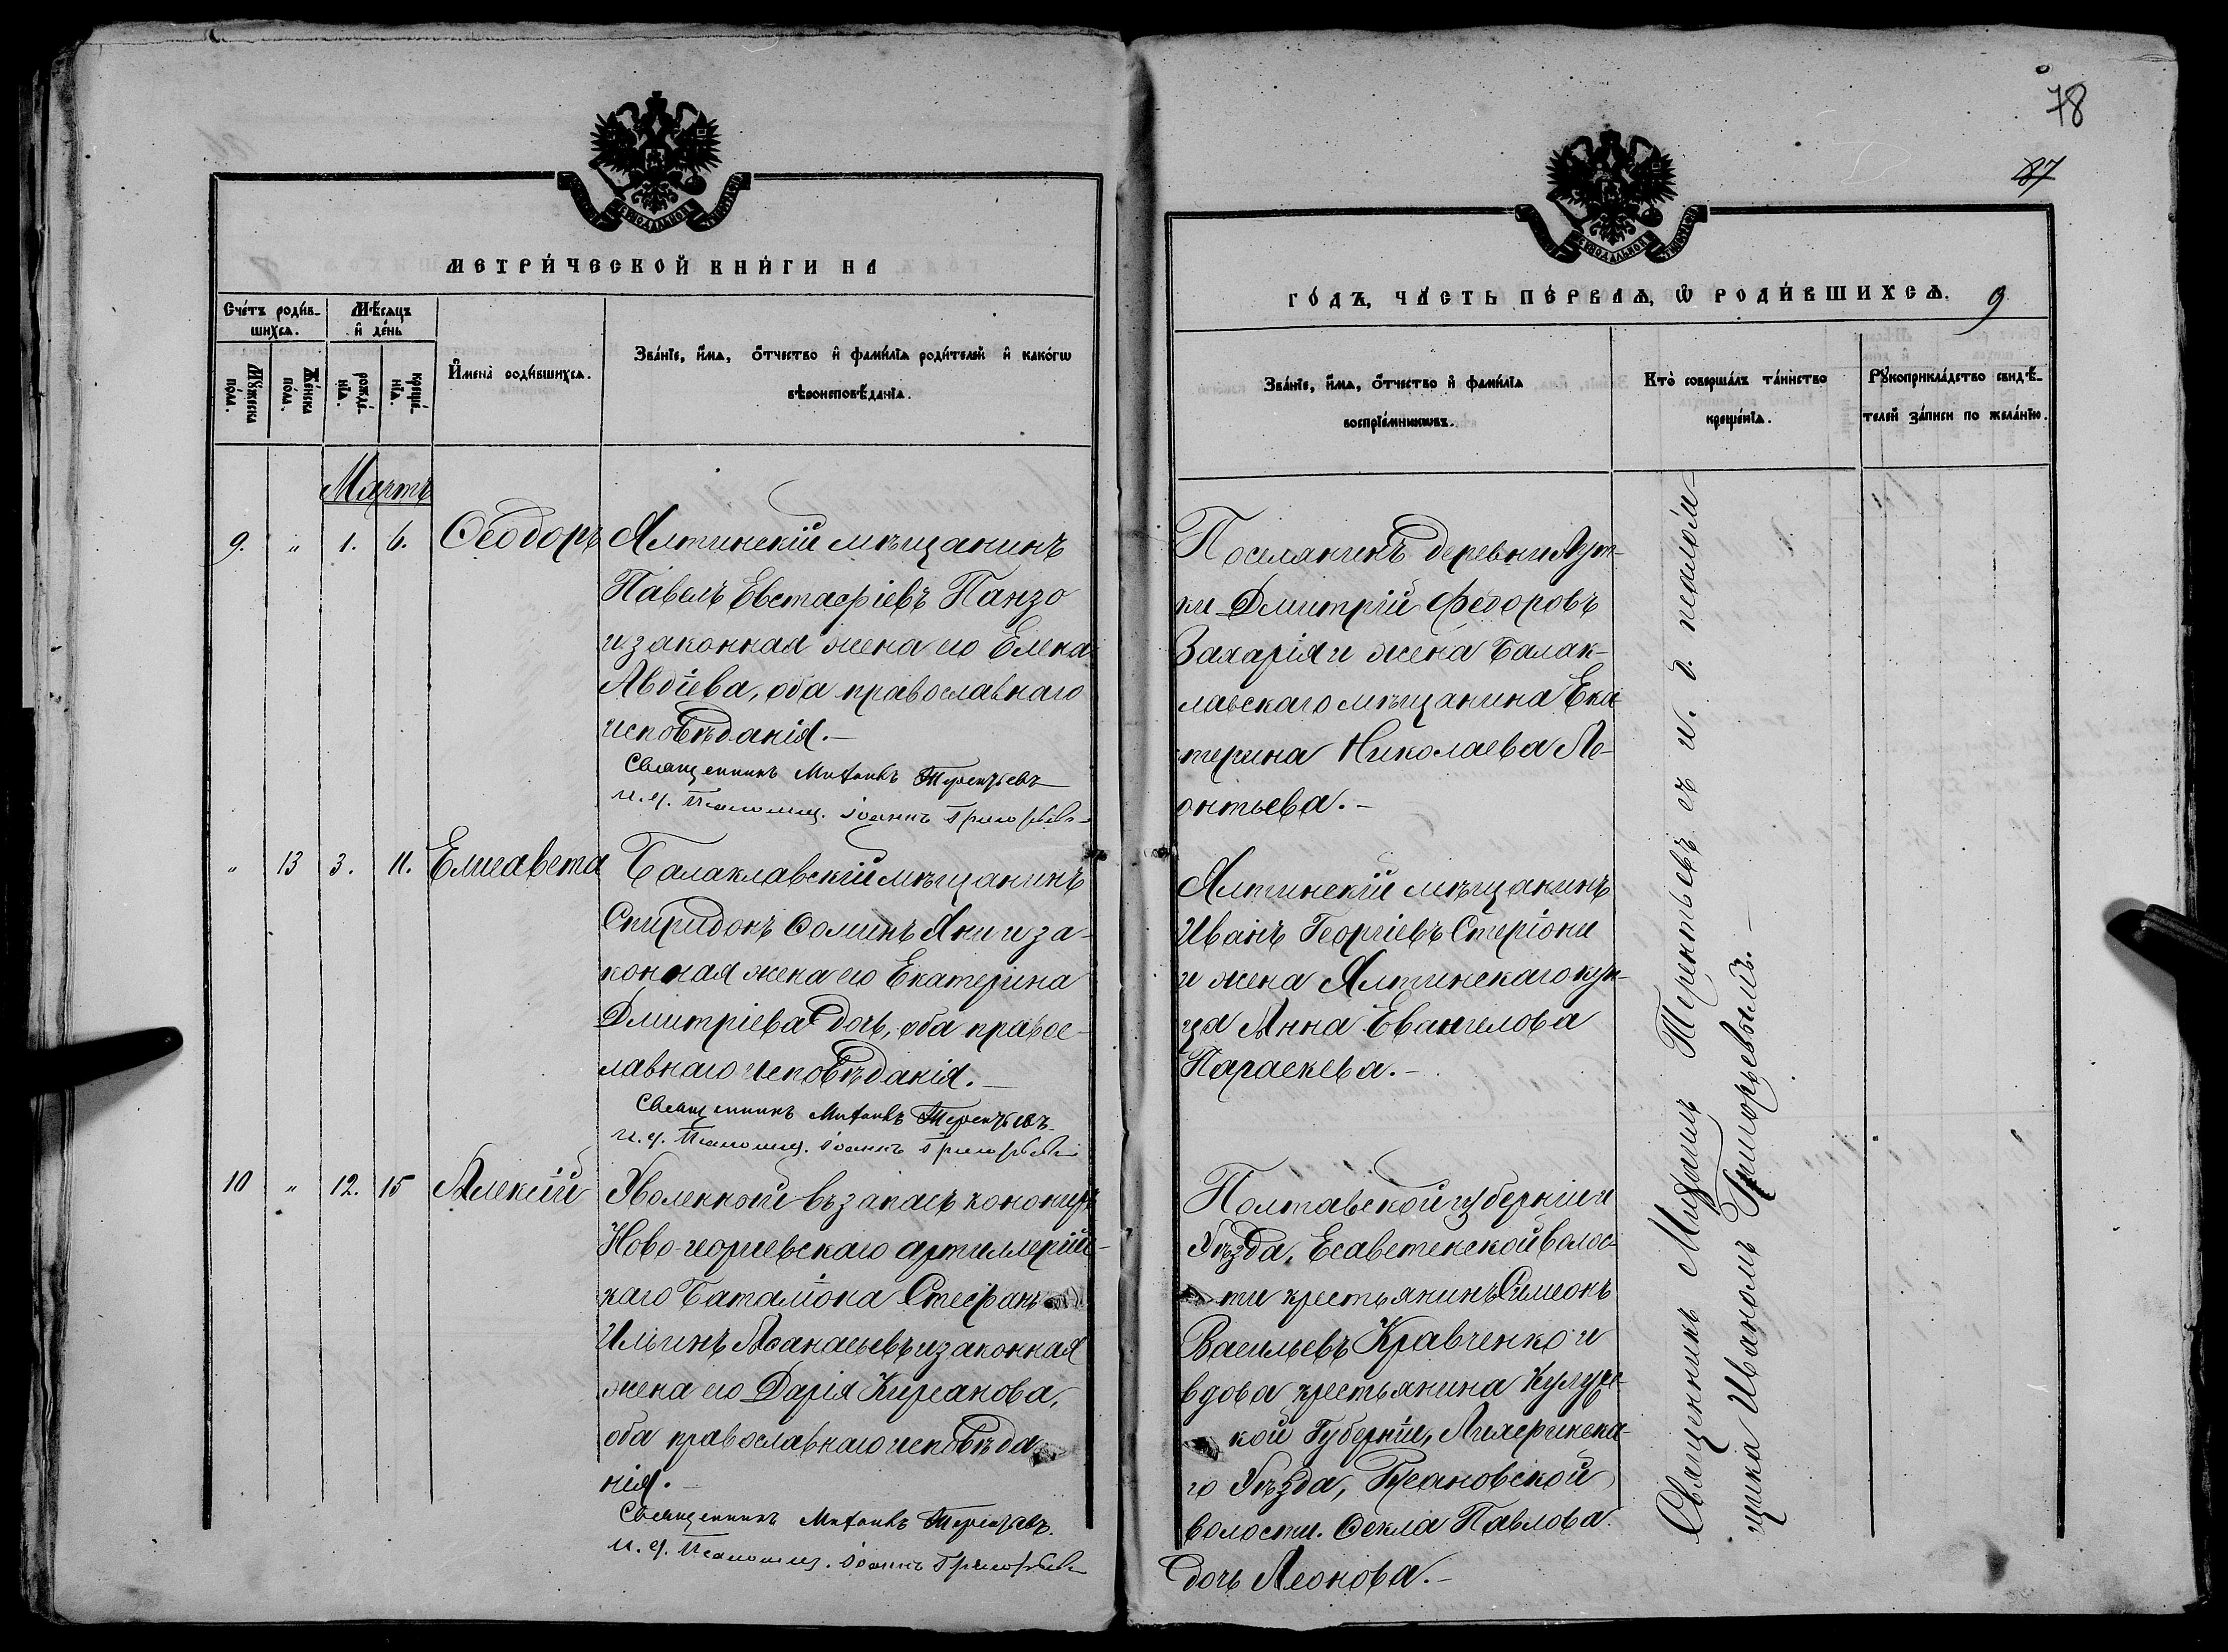 78
87
МЕТРИЧЕСКОЙ КНИГИ НА
ГОДЪ, ЧАСТЬ ПЕРВАЯ, Ѿ РОДИВШИХСЯ. 9
Счетъ родив-
шихся.
Мѣсяцъ
и день
Мужеска
пола.
Женска
пола.
рожде-
нія.
креще-
нія.
Имена родившихся.
Званіе, имя, отчество и фамилія родителей и какогѡ
вѣроисповѣданія.
Званіе, имя, отчество и фамилія
воспріемниковъ.
Кто совершалъ таинство
крещенія.
Рукоприкладство свидѣ-
телей записи по желанію.
Мартъ
9. " 1. 6. Ѳеодоръ
Ялтинскій мѣщанинъ
Павелъ Евстафіевъ Панзо
и законная жена его Елена
Авдіева, оба православнаго
исповѣданія.-
Священникъ Михаилъ Терентьевъ
и. д. Псаломщ. Іоаннъ Григорьевъ
Поселянинъ деревни Аут-
ки Дмитрій Федоровъ
Захарія и жена Балак-
лавскаго мѣщанина Ека-
терина Николаева Ле-
онтьева.-
" 13 3. 11. Елисавета
Балаклавскій мѣщанинъ
Спиридонъ Ѳоминъ Яни и за-
конная жена его Екатерина
Дмитріева дочь, оба правос-
лавнаго исповѣданія.-
Священникъ Михаилъ Терентьевъ
и. д. Псаломщ. Іоаннъ Григорьевъ
Ялтинскій мѣщанинъ
Иванъ Георгіевъ Стеріони
и жена Ялтинскаго куп-
ца Анна Евангелова
Параскева.-
10 " 12. 15 Алексій
Уволенной въ запасъ канониръ
Ново-георгіевскаго артиллерійс-
каго Баталіона Стефанъ
Ильинъ Аѳанасьевъ и законная
жена его Дарія Кирсанова,
оба православнаго исповѣда-
нія.-
Священникъ Михаилъ Терентьевъ.
и. д. Псаломщ. Іоаннъ Григорьевъ
Полтавской губерніи и
Уѣзда, волос-
ти крестьянинъ Симеонъ
Васильевъ Кравченко и
вдова крестьянина
кой Губерніи,
го Уѣзда,
волости. Ѳекла Павлова
дочь Леонова.-
Священникъ Михаилъ Терентьевъ съ и. д. псалом-
щика Иваномъ Григорьевымъ.-